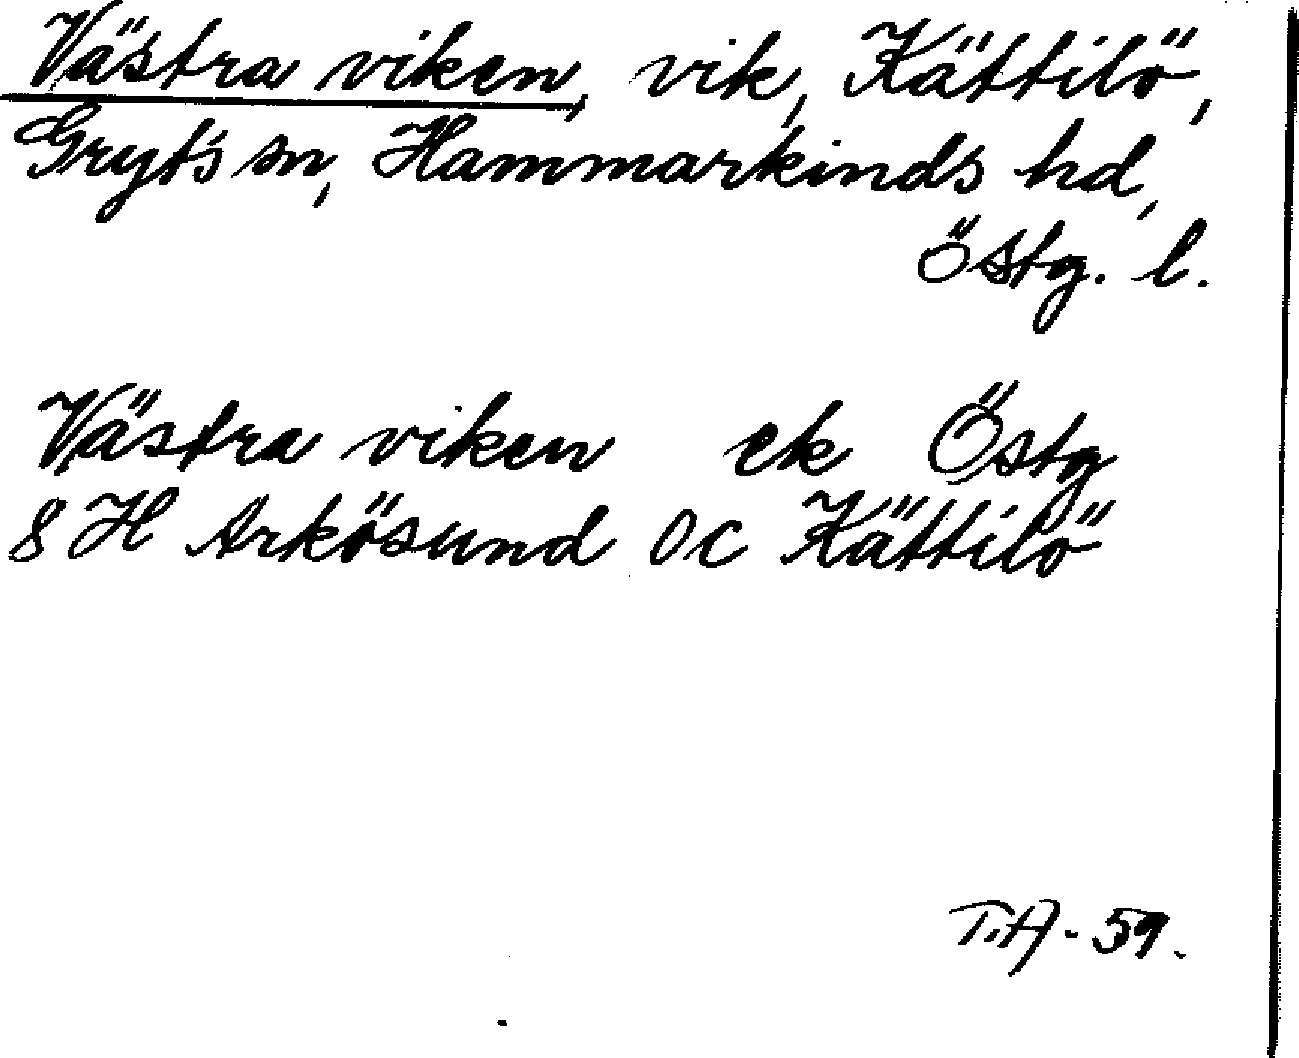 Västra viken, vik, Kättilö,
Gryts sn, Hammarkinds hd,
Östg. l.
Västra viken ek Östg
8 H Arkösund 0 c Kättilö
T.A - 59.